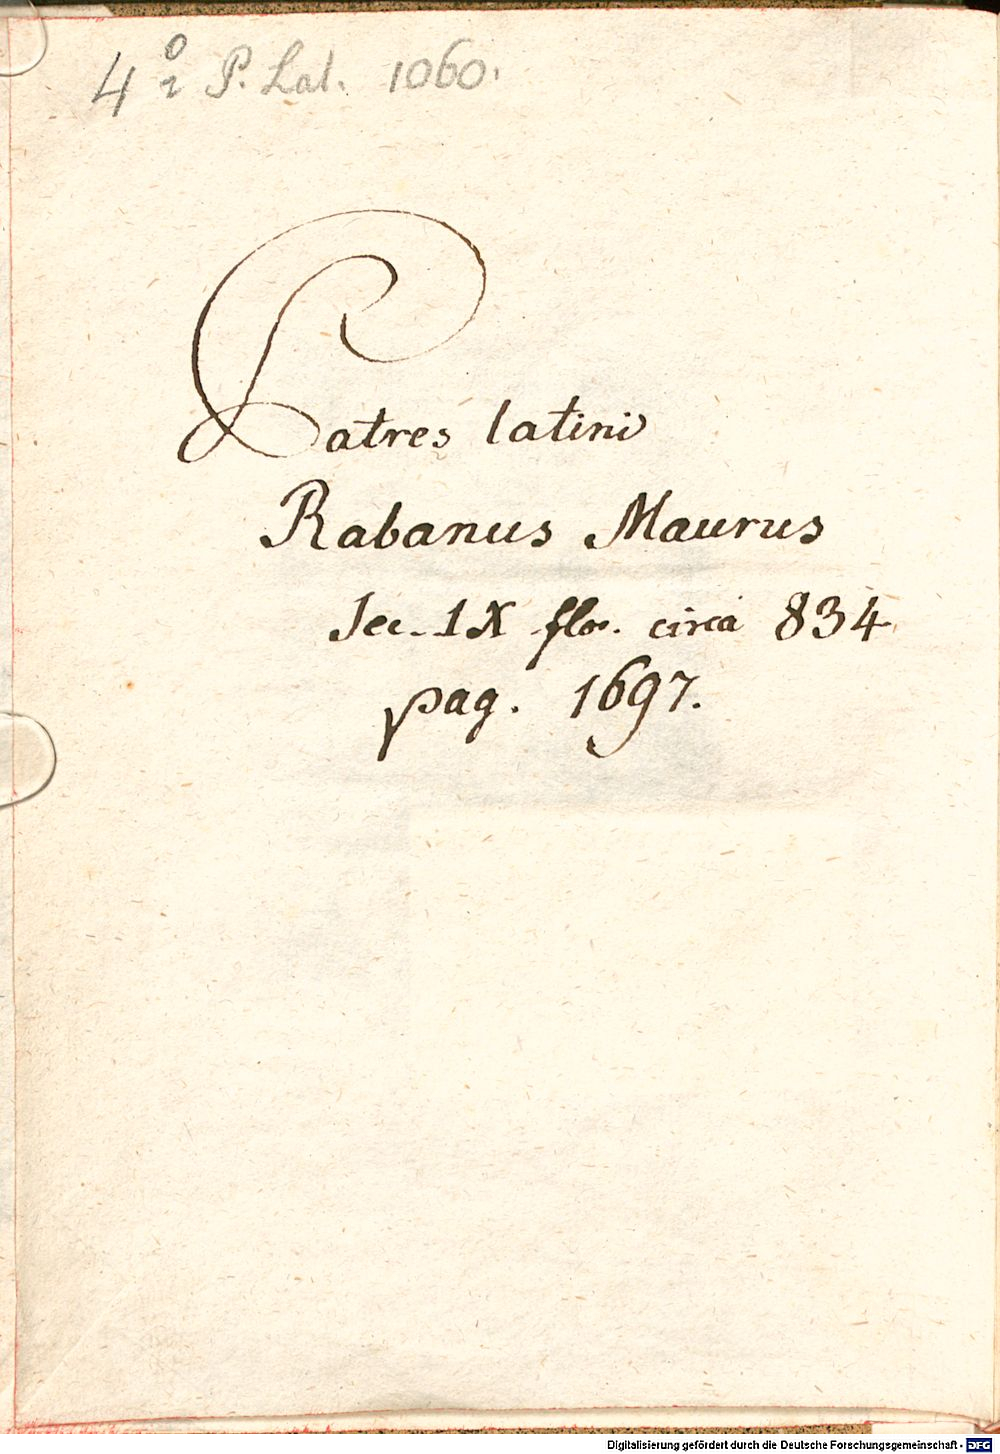 4o P. Lat. 1060.
Patres latini
Rabanus Maurus
Sec. IX flor. circa 834
pag. 1697.
Digitalisierung gefördert durch die Deutsche Forschungsgemeinschaft - DFG